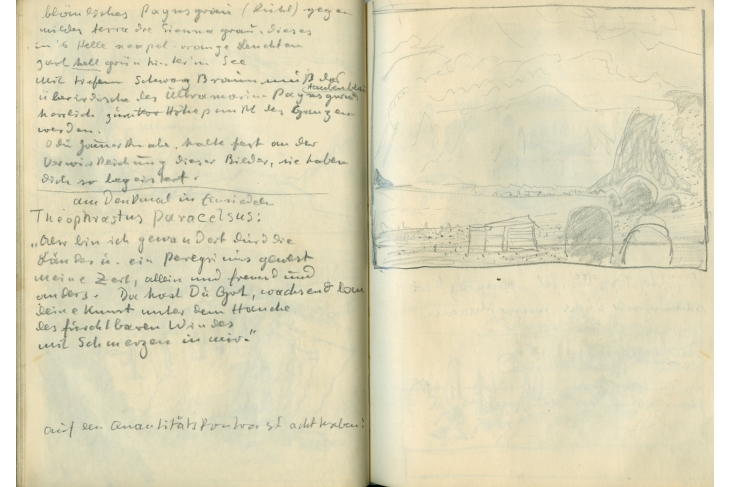 bläuliches Paynsgrau (kühl) gegen
mildes terra die Sienna grau, dieses
in's Helle neapel-orange Leuchten
zart hell grün hinterm See
Mit tiefem Schwarz Braun muß das
überirdische des Ultramarin Paynsgrau
herrlich zum Höhepunkt des Ganzen
werden.
O du halte fest an der
Verwirklichung dieser Bilder, sie haben
dich so begeistert.
am Denkmal in Einsiedeln
Theophrastus Paracelsus:
„Also bin ich gewandert durch die
Länder u. ein Peregrinus gewest
meine Zeit, allein und fremd und
anders. Da hast Du Gott, wachsen
Deine Kunst unter dem Hauche
des furchtbaren Windes
mit Schmerzen in mir."
auf den Quantitätskontrast acht haben!